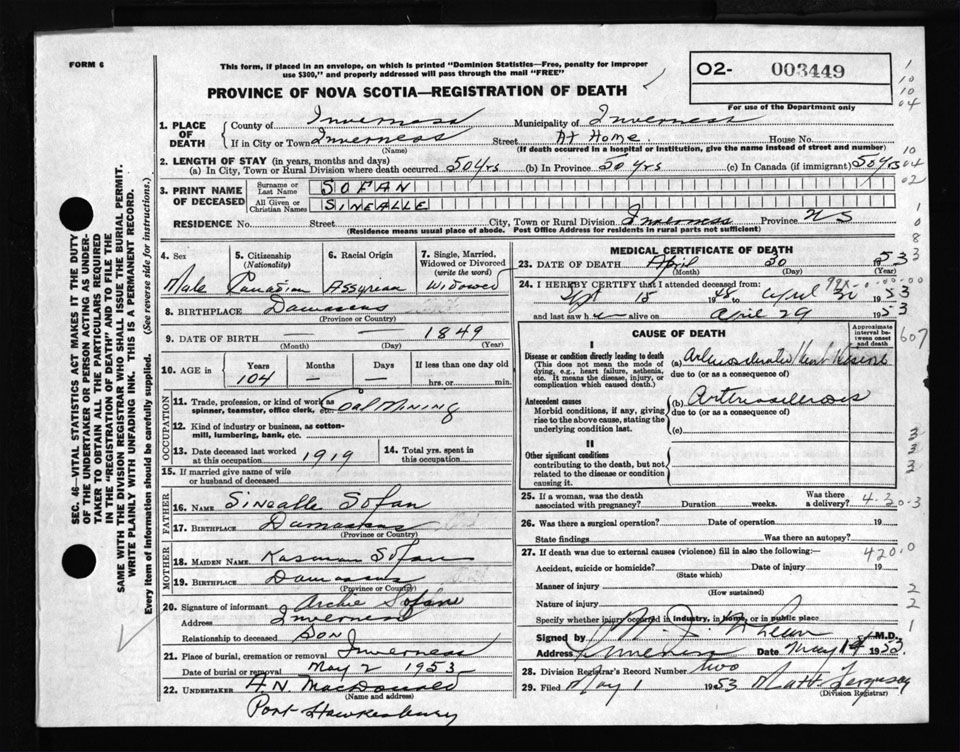 FORM 6
This form, if placed in an envelope, on which is printed "Dominion Statistics—Free, penalty for improper
use $300," and properly addressed will pass through the mail "FREE"
PROVINCE OF NOVA SCOTIA—REGISTRATION OF DEATH
02- 003449
For use of the Department only
1. PLACE OF DEATH
County of Inverness Municipality of Inverness
If in City or Town Inverness Street At Home House No.
(Name) (If death occurred in a hospital or institution, give the name instead of street and number)
2. LENGTH OF STAY (in years, months and days)
(a) In City, Town or Rural Division where death occurred 50 yrs (b) In Province 50 yrs (c) In Canada (if immigrant) 50 yrs
3. PRINT NAME OF DECEASED
Surname or Last Name SOFAN
All Given or Christian Names SINEALLE
RESIDENCE No. Street City, Town or Rural Division Inverness Province N S
(Residence means usual place of abode. Post Office Address for residents in rural parts not sufficient)
4. Sex Male
5. Citizenship (Nationality) Canadian
6. Racial Origin Assyrian
7. Single, Married, Widowed or Divorced (write the word) Widowed
8. BIRTHPLACE Damascus
(Province or Country)
9. DATE OF BIRTH 1849
(Month) (Day) (Year)
10. AGE in Years 104 Months – Days If less than one day old hrs. or min.
OCCUPATION
11. Trade, profession, or kind of work as spinner, teamster, office clerk, etc. Coal Mining
12. Kind of industry or business, as cotton-mill, lumbering, bank, etc.
13. Date deceased last worked at this occupation 1919
14. Total yrs. spent in this occupation
15. If married give name of wife or husband of deceased
FATHER
16. NAME Sinealle Sofan
17. BIRTHPLACE Damascus
(Province or Country)
MOTHER
18. MAIDEN NAME Sofan
19. BIRTHPLACE Damascus
(Province or Country)
20. Signature of informant Archie Sofan
Address Inverness
Relationship to deceased Son
21. Place of burial, cremation or removal Inverness
Date of burial or removal May 2 1953
22. UNDERTAKER A.N. MacDonald
(Name and address)
Port Hawkesbury
MEDICAL CERTIFICATE OF DEATH
23. DATE OF DEATH April 30 1953
(Month) (Day) (Year)
24. I HEREBY CERTIFY that I attended deceased from:
Sept 15 1948 to April 30 1953
and last saw h alive on April 29 1953
CAUSE OF DEATH
Approximate interval between onset and death
I
Disease or condition directly leading to death
(This does not mean the mode of dying, e.g., heart failure, asthenia, etc. It means the disease, injury, or complication which caused death.)
(a) Heart Disease
due to (or as a consequence of)
Antecedent causes
Morbid conditions, if any, giving rise to the above cause, stating the underlying condition last.
(b) Arteriosclerosis
due to (or as a consequence of)
(c)
II
Other significant conditions
contributing to the death, but not related to the disease or condition causing it.
25. If a woman, was the death associated with pregnancy? Duration weeks. Was there a delivery?
26. Was there a surgical operation? Date of operation 19
State findings Was there an autopsy?
27. If death was due to external causes (violence) fill in also the following:—
Accident, suicide or homicide? Date of injury 19
(State which)
Manner of injury
(How sustained)
Nature of injury
Specify whether injury occurred in industry, in home, or in public place
Signed by M.D.
Address Inverness Date May 1953
28. Division Registrar's Record Number two
29. Filed May 1 1953 Matt Ferguson
(Division Registrar)
SEC. 46—VITAL STATISTICS ACT MAKES IT THE DUTY
OF THE UNDERTAKER OR PERSON ACTING AS UNDER-
TAKER TO OBTAIN ALL THE PARTICULARS REQUIRED
IN THE "REGISTRATION OF DEATH" AND TO FILE THE
SAME WITH THE DIVISION REGISTRAR WHO SHALL ISSUE THE BURIAL PERMIT.
WRITE PLAINLY WITH UNFADING INK. THIS IS A PERMANENT RECORD.
Every item of information should be carefully supplied. (See reverse side for instructions.)
1
10
10
04
10
04
02
1
0
8
3
607
3
3
3
4-30-3
420.0
2
2
1